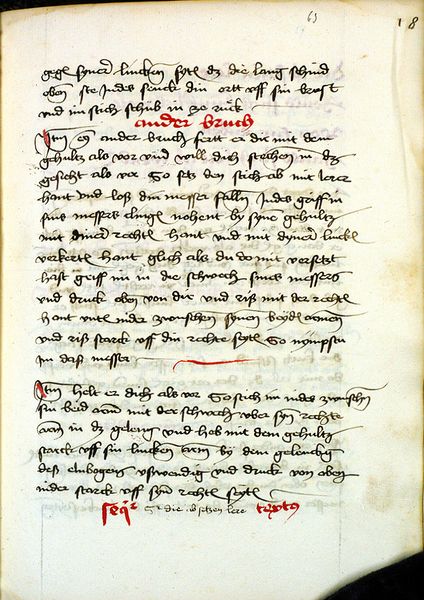 63
18
gege syner lincken sytt dz die lang schnid
oben ste Indes senck din ortt uff sin brost
und im stich schüb in ze rück
ander bruch
Item ein ander bruch fertt er dir mit dem
gehultz als vor und will dich stechen in dz
gesicht als vor So setz den stich ab mit lerer
hant und loß din messer fallen Indes griff im
sins messers clinge nohent by syne gehultz
mit diner rechte hant und mit dyner lincke
verkerte hant glich als du do mit versetzt
häst griff im in die schwech sines messers
und druck oben von dir und riß mit der rechte
hant unte nider zwuschen synen beyde armen
und riß starck uff din rechte syte So nympstu
im daß messer
Item helt er dich als vor So stich im indes zwuschen
sin beid arm mit der schwach uber syn rechte
arm in dz geleng und heb mit dem gehultz
starck uff sin lincken arm by dem gelenck
deß elnbogens ußwendig und druck von oben
nider starck uff syn rechte syte
seqr die absetzen lere textus